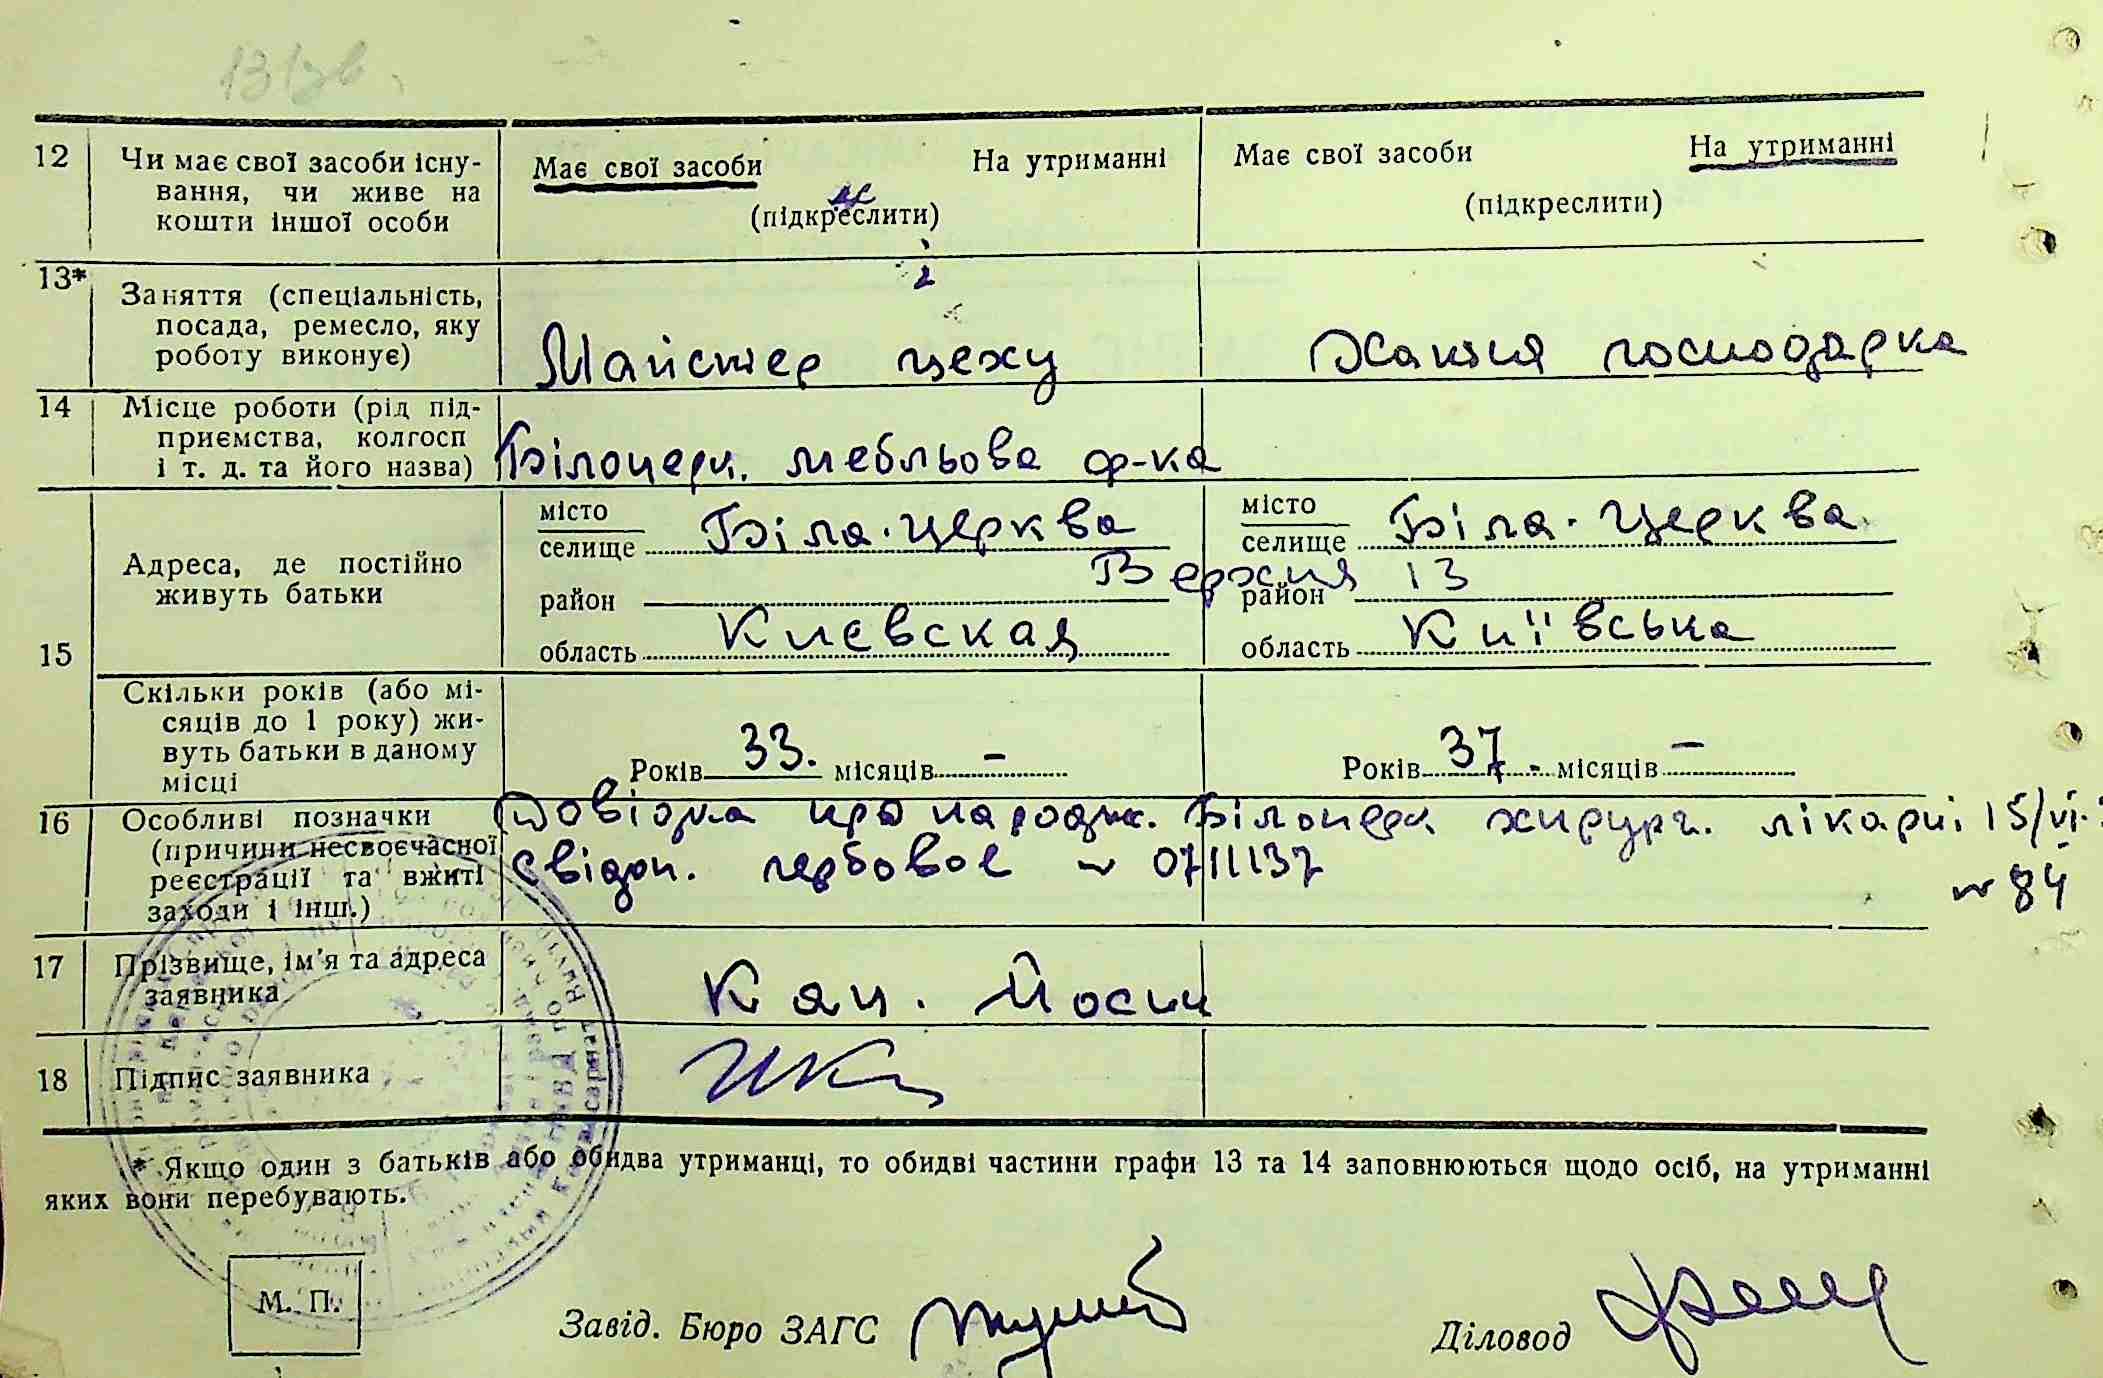 12 Чи має свої засоби існу-
вання, чи живе на
кошти іншої особи
Має свої засоби На утриманні
(підкреслити)
Має свої засоби На утриманні
(підкреслити)
13* Заняття (спеціальність,
посада, ремесло, яку
роботу виконує)
Майстер цеху
Хатня господарка
14 Місце роботи (рід під-
приємства, колгосп
і т. д. та його назва)
Білоцерк. мебльова ф-ка
15 Адреса, де постійно
живуть батьки
місто
селище Біла-Церква
район
область Киевская
місто
селище Біла-Церква
Верхня 13
район
область Київська
Скільки років (або мі-
сяців до 1 року) жи-
вуть батьки в даному
місці
Років 33. місяців –
Років 37. місяців –
16 Особливі позначки
(причини несвоєчасної
реєстрації та вжиті
заходи і інш.)
Довідка про народж. Білоцерк хирург. лікарні 15/VI.
№ 84
Свідоц. гербовое № 0711137
17 Прізвище, ім'я та адреса
заявника
Кац. Йосип
18 Підпис заявника
* Якщо один з батьків або обидва утриманці, то обидві частини графи 13 та 14 заповнюються щодо осіб, на утриманні
яких вони перебувають.
М. П.
Завід. Бюро ЗАГС
Діловод